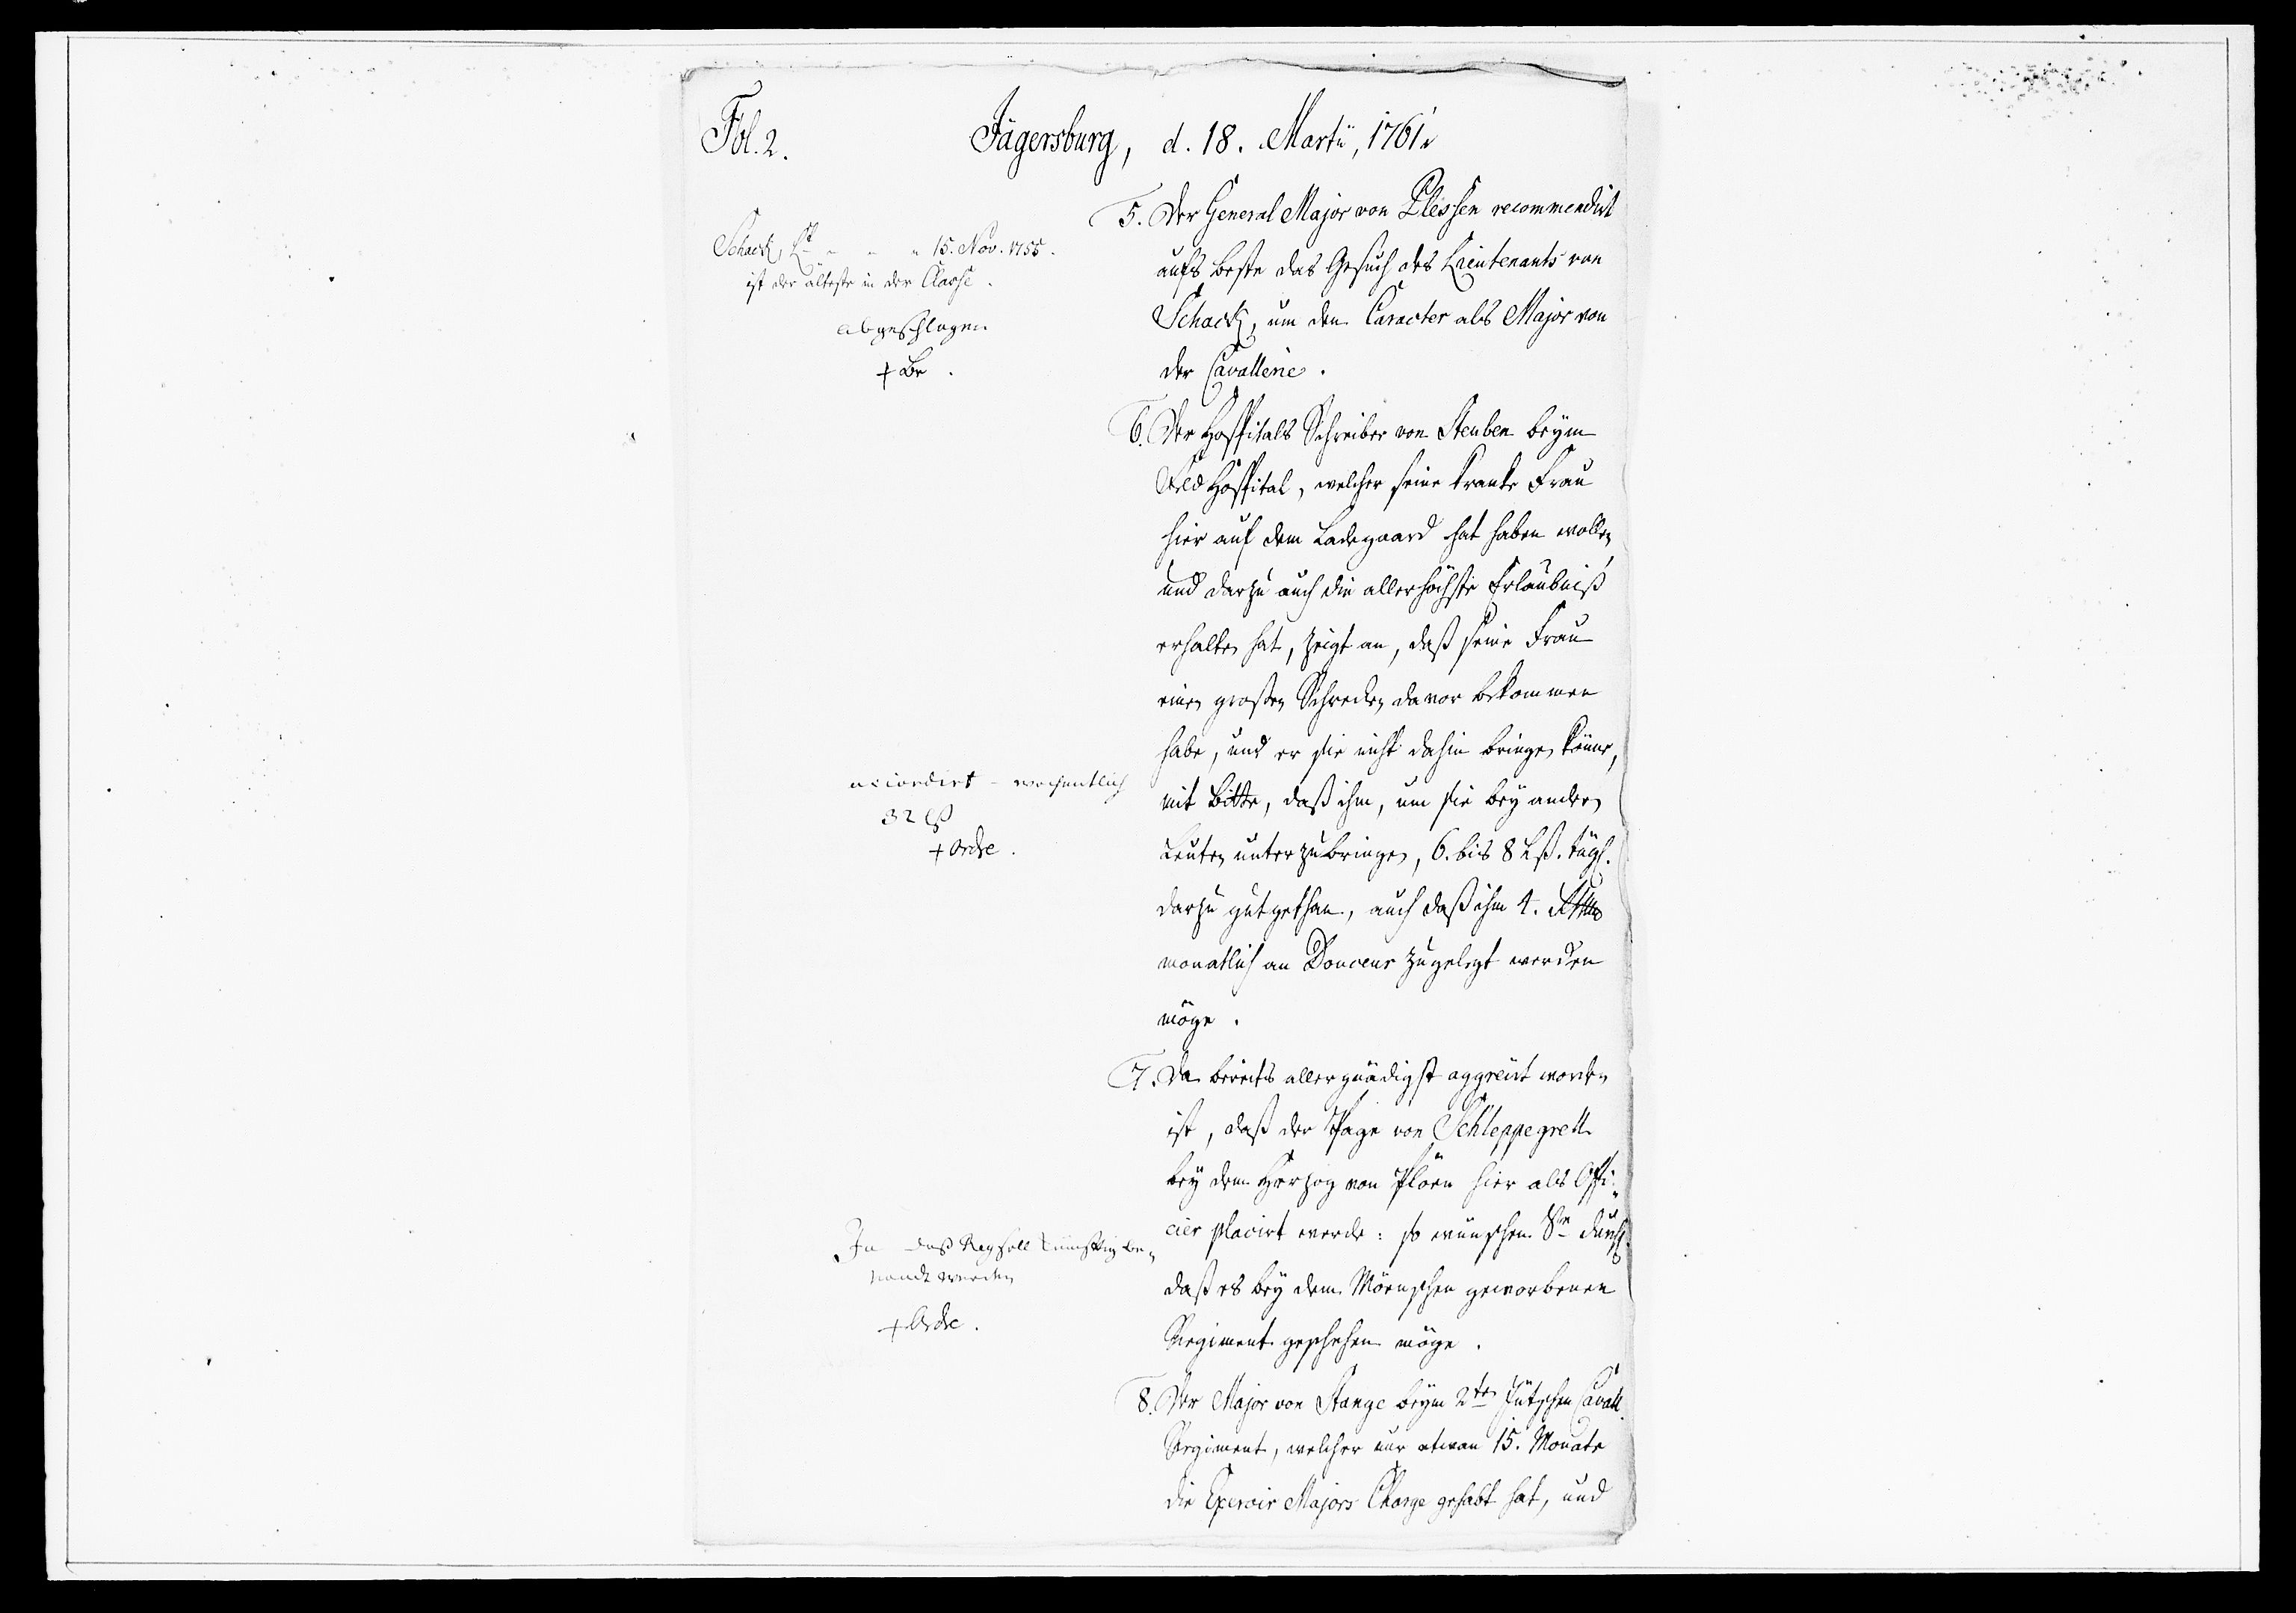 Fol. 2.
Jägersburg, d. 18. Martii, 1761.
5. Der General Major von Plessen recommendirt
aufs beste das Gesuch des Lieutenants von
Schack, um den Caracter als Major von
der Cavallerie.
Schack, Lt - - " 15. Nov. 1755.
ist der älteste in der Classe.
abgeschlagen
+ Br.
6. Der Hospitals Schreiber von Steuben beym
Feld Hospital, welcher seine kranke Frau
hier auf dem Ladegaard hat haben wollen,
und darzu auch die allerhöchste Erlaubniß
erhalten hat, zeigt an, daß seine Frau
einen großen Schrecken davor bekommen
habe, und er sie nicht dahin bringen könne,
mit Bitte, daß ihm, um sie bey andern
Leuten unterzubringen, 6. bis 8 Lß. tägl.
darzu gutgethan, auch daß ihm 4.
monatlich an Douceur zugelegt werden
möge.
accordirt - wochentlich
32 lß
+ Ordre.
7. Da bereits allergnädigst aggreirt worden
ist, daß der Page von Schleppegrell
bey dem Herzog von Ploen hier als Offi-
cier placirt werde: so wünschen Sr. Durchl.
daß es bey dem Mörnschen geworbenen
Regiment geschehen möge.
Ja daß Reg soll künftig be-
nandt werden
+ Ordre.
8. Der Major von Stange beym 2ten Jütschen Cavall.
Regiment, welcher nur etwan 15. Monate
die Exercir Majors Charge gehabt hat, und